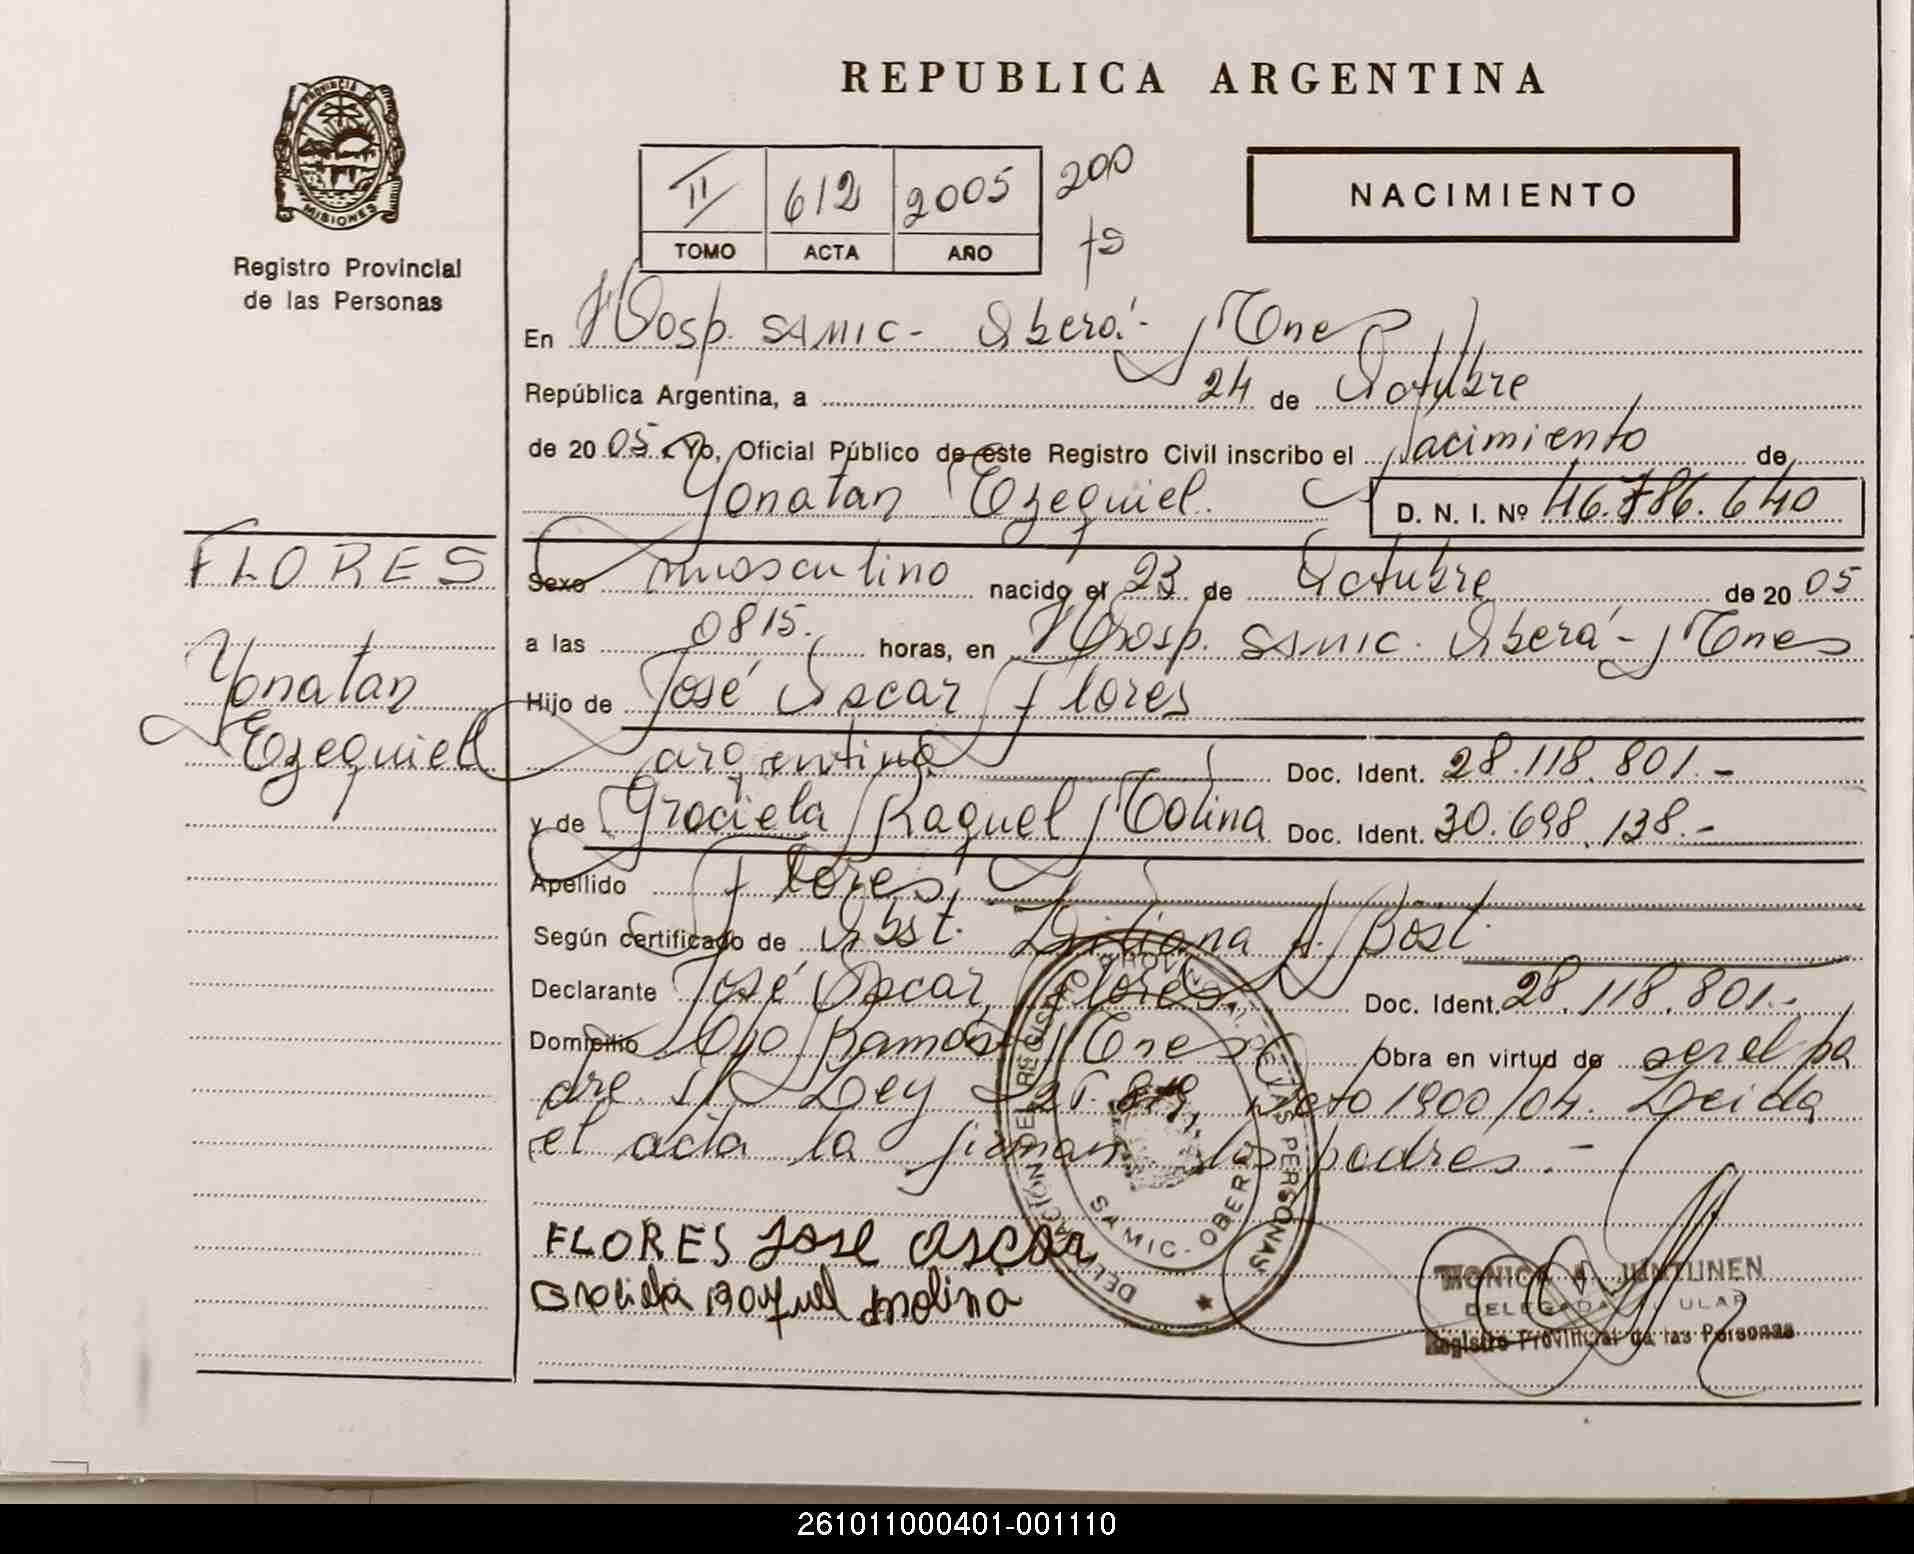 REPUBLICA ARGENTINA
PROVINCIA DE
MISIONES
Registro Provincial
de las Personas
II 612 2005 200
TOMO ACTA AÑO fs
NACIMIENTO
En Hosp. SAMIC - Oberá - Mnes
República Argentina, a 24 de Octubre
de 20 05. Yo, Oficial Público de este Registro Civil inscribo el Nacimiento de
Yonatan Ezequiel. D. N. I. Nº 46.786.640
FLORES
Yonatan
Ezequiel
Sexo masculino nacido el 23 de Octubre de 20 05
a las 0815. horas, en Hosp. SAMIC. Oberá - Mnes
Hijo de José Oscar Flores
argentino Doc. Ident. 28.118.801.-
y de Graciela Raquel Molina Doc. Ident. 30.698.138.-
Apellido Flores
Según certificado de Obst. Liliana A. Bost.
Declarante José Oscar Flores Doc. Ident. 28.118.801.-
Domicilio Cyo Ramos Mnes Obra en virtud de ser el pa
dre s/ Ley Dcto 1900/04. Leida
el acta la firman los padres.-
FLORES JOSE OSCAR
Graciela Raquel Molina
DELEGACIÓN DEL REGISTRO PROVINCIAL DE LAS PERSONAS
SAMIC - OBERÁ
MONICA A. JUNTUNEN
DELEGADA TITULAR
Registro Provincial de las Personas
261011000401-001110